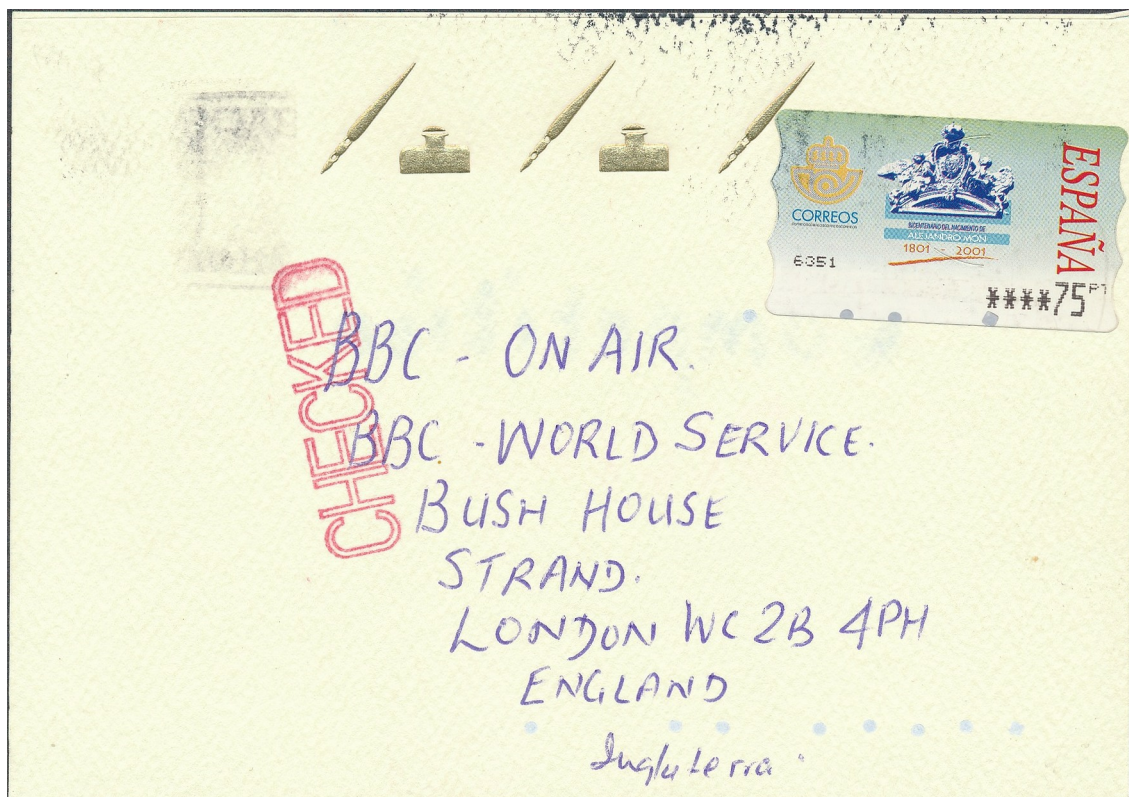 CORREOS
ESPAÑA
BICENTENARIO DEL NACIMIENTO DE
ALEJANDRO MON
1801 - 2001
6351
****75 PT
CHECKED
BBC - ON AIR.
BBC - WORLD SERVICE.
BUSH HOUSE
STRAND.
LONDON WC2B 4PH
ENGLAND
Inglaterra